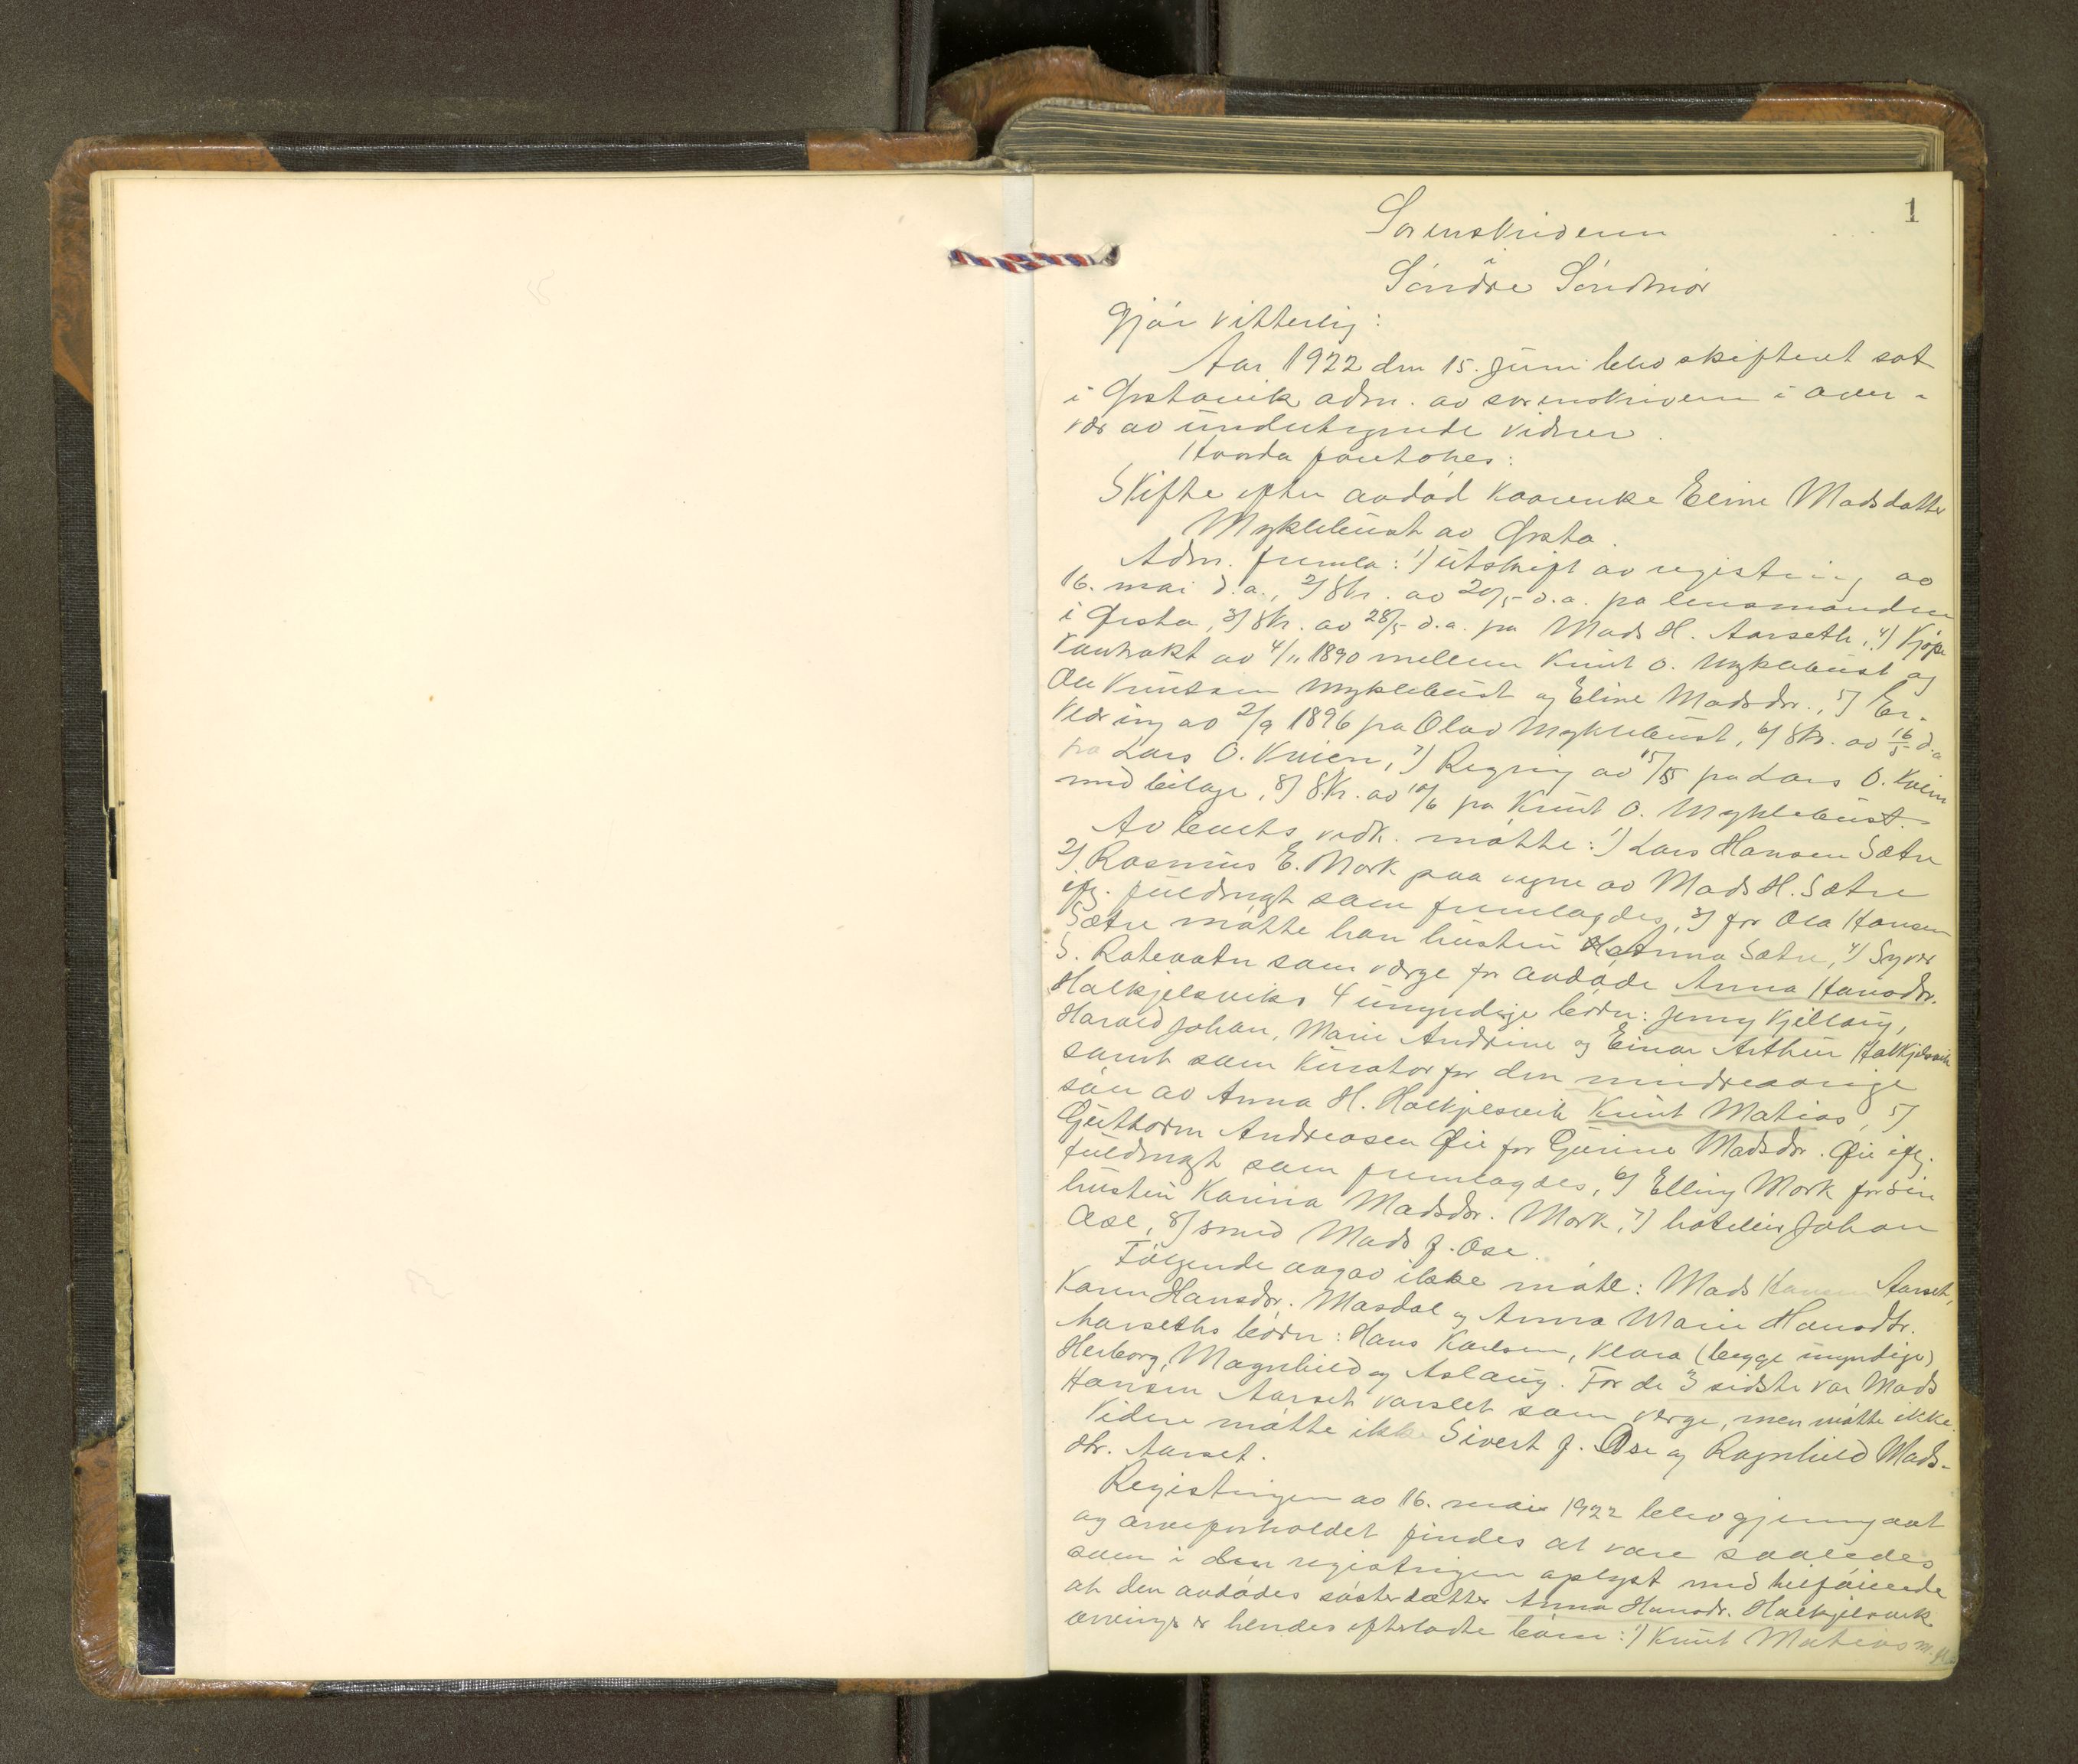 1
Sorenskriveren
i
Söndre Söndmör
gjör vitterlig:
Aar 1922 den 15. juni blev skifteret sat
i Ørstavik adm. av sorenskriveren i over-
vær av undertegnede vidner.
Hvorda foretokes:
Skifte efter avdöd kaarenke Eline Madsdatter
Myklebust av Ørsta.
Adm. fremla: 1) utskrift av registring av
16. mai d.a., 2) Skr. av 20/5 d.a. fra lensmanden
i Ørsta, 3) Skr. av 28/5 d.a. fra Mads H. Aarseth, 4) Kjöpe
kontrakt av 4/11 1890 mellem Knut O. Myklebust og
Ole Knutsen Myklebust og Eline Madsdr., 5) Er-
klæring av 2/9 1896 fra Olav Myklebust, 6) Skr. av 16/5 d.a
fra Lars O. Kvien, 7) Regning av 15/5 fra Lars O. Kvien
med bilage, 8) Skr. av 10/6 fra Knut O. Myklebust.
Av boets vedk. mötte: 1) Lars Hansen Sætre
2) Rasmus E. Mork paa vegne av Mads H. Sætre
iflg. fuldmagt som fremlagdes, 3) for Ola Hansen
Sætre mötte han hustru Anna Sætre, 4) Syver
S. Rotevatn som værge for avdöde Anna Hansdtr.
Halkjelsviks 4 umyndige börn: Jenny Kjellaug,
Harald Johan, Marie Andrine og Einar Arthur Halkjelsvik
samt som kurator for den mindreaarige
sön av Anna H. Halkjelsvik Knut Matias, 5)
Guttorm Andreasen Øie for Gurine Madsdr. Øie iflg.
fuldmagt som fremlagdes, 6) Elling Mork for sin
hustru Karina Madsdr. Mork, 7) hotelier Johan
Ose, 8) smed Mads J. Ose.
Fölgende avgav ikke möte: Mads Hansen Aarset,
Karen Hansdr. Masdal og Anna Marie Hansdtr.
Aarseths börn: Hans Karlsen, Klara (begge umyndige)
Herborg, Magnhild og Aslaug. For de 3 sidste var Mads
Hansen Aarset varslet som værge, men mötte ikke.
Videre mötte ikke Sivert J. Ose og Ragnhild Mads-
dtr. Aarset.
Registringen av 16. mai 1922 blev gjennemgaat
og arveforholdet findes at være saaledes
som i den registringen oplyst med tilföiende
at den avdödes sösterdatter Anna Hansdr. Halkjelsvik
arvinger er hendes efterlatte börn: 1) Knut Matias